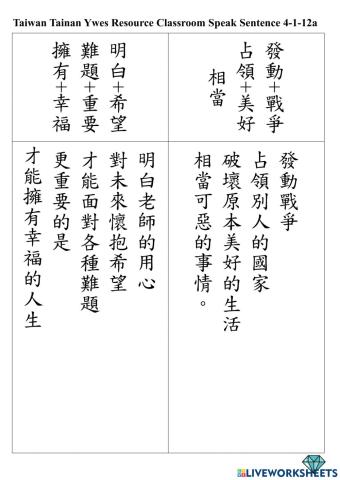 Taiwan Tainan Ywes Resource Classroom Speak Sentence 4-1-12a
發動+戰爭
占領+美好
相當
發動戰爭
占領別人的國家
破壞原本美好的生活
相當可惡的事情。
明白+希望
難題+重要
擁有+幸福
明白老師的用心
對未來懷抱希望
才能面對各種難題
更重要的是
才能擁有幸福的人生
LIVEWORKSHEETS